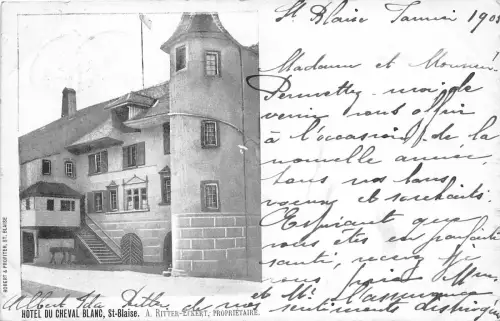 St Blaise Janvier 190
Madame et Monsieur
Permettez-moi de
venir vous offrir
à l'occasion de la
nouvelle année,
tous nos bons
voeux et souhaits.
Espérant que
vous êtes en parfaite
santé, recevez
vous,
et Mr. l'assurance
de nos sentiments distingués
Albert Ida Ritter
HOTEL DU CHEVAL BLANC, St-Blaise. A. RITTER-ECKERT, PROPRIÉTAIRE.
ROBERT & PROFITER, ST. BLAISE